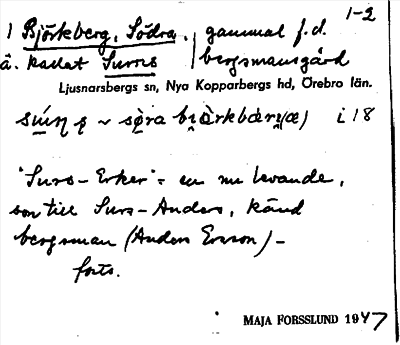 1-2
1 Björkberg, Södra, gammal f.d.
å. kallat Surns / bergsmansgård
Ljusnarsbergs sn, Nya Kopparbergs hd, Örebro län.
i 18
"Surs-Erker" = en nu levande,
son till Surs-Anders, känd
bergsman (Anders Ersson) -
forts.
MAJA FORSSLUND 1947